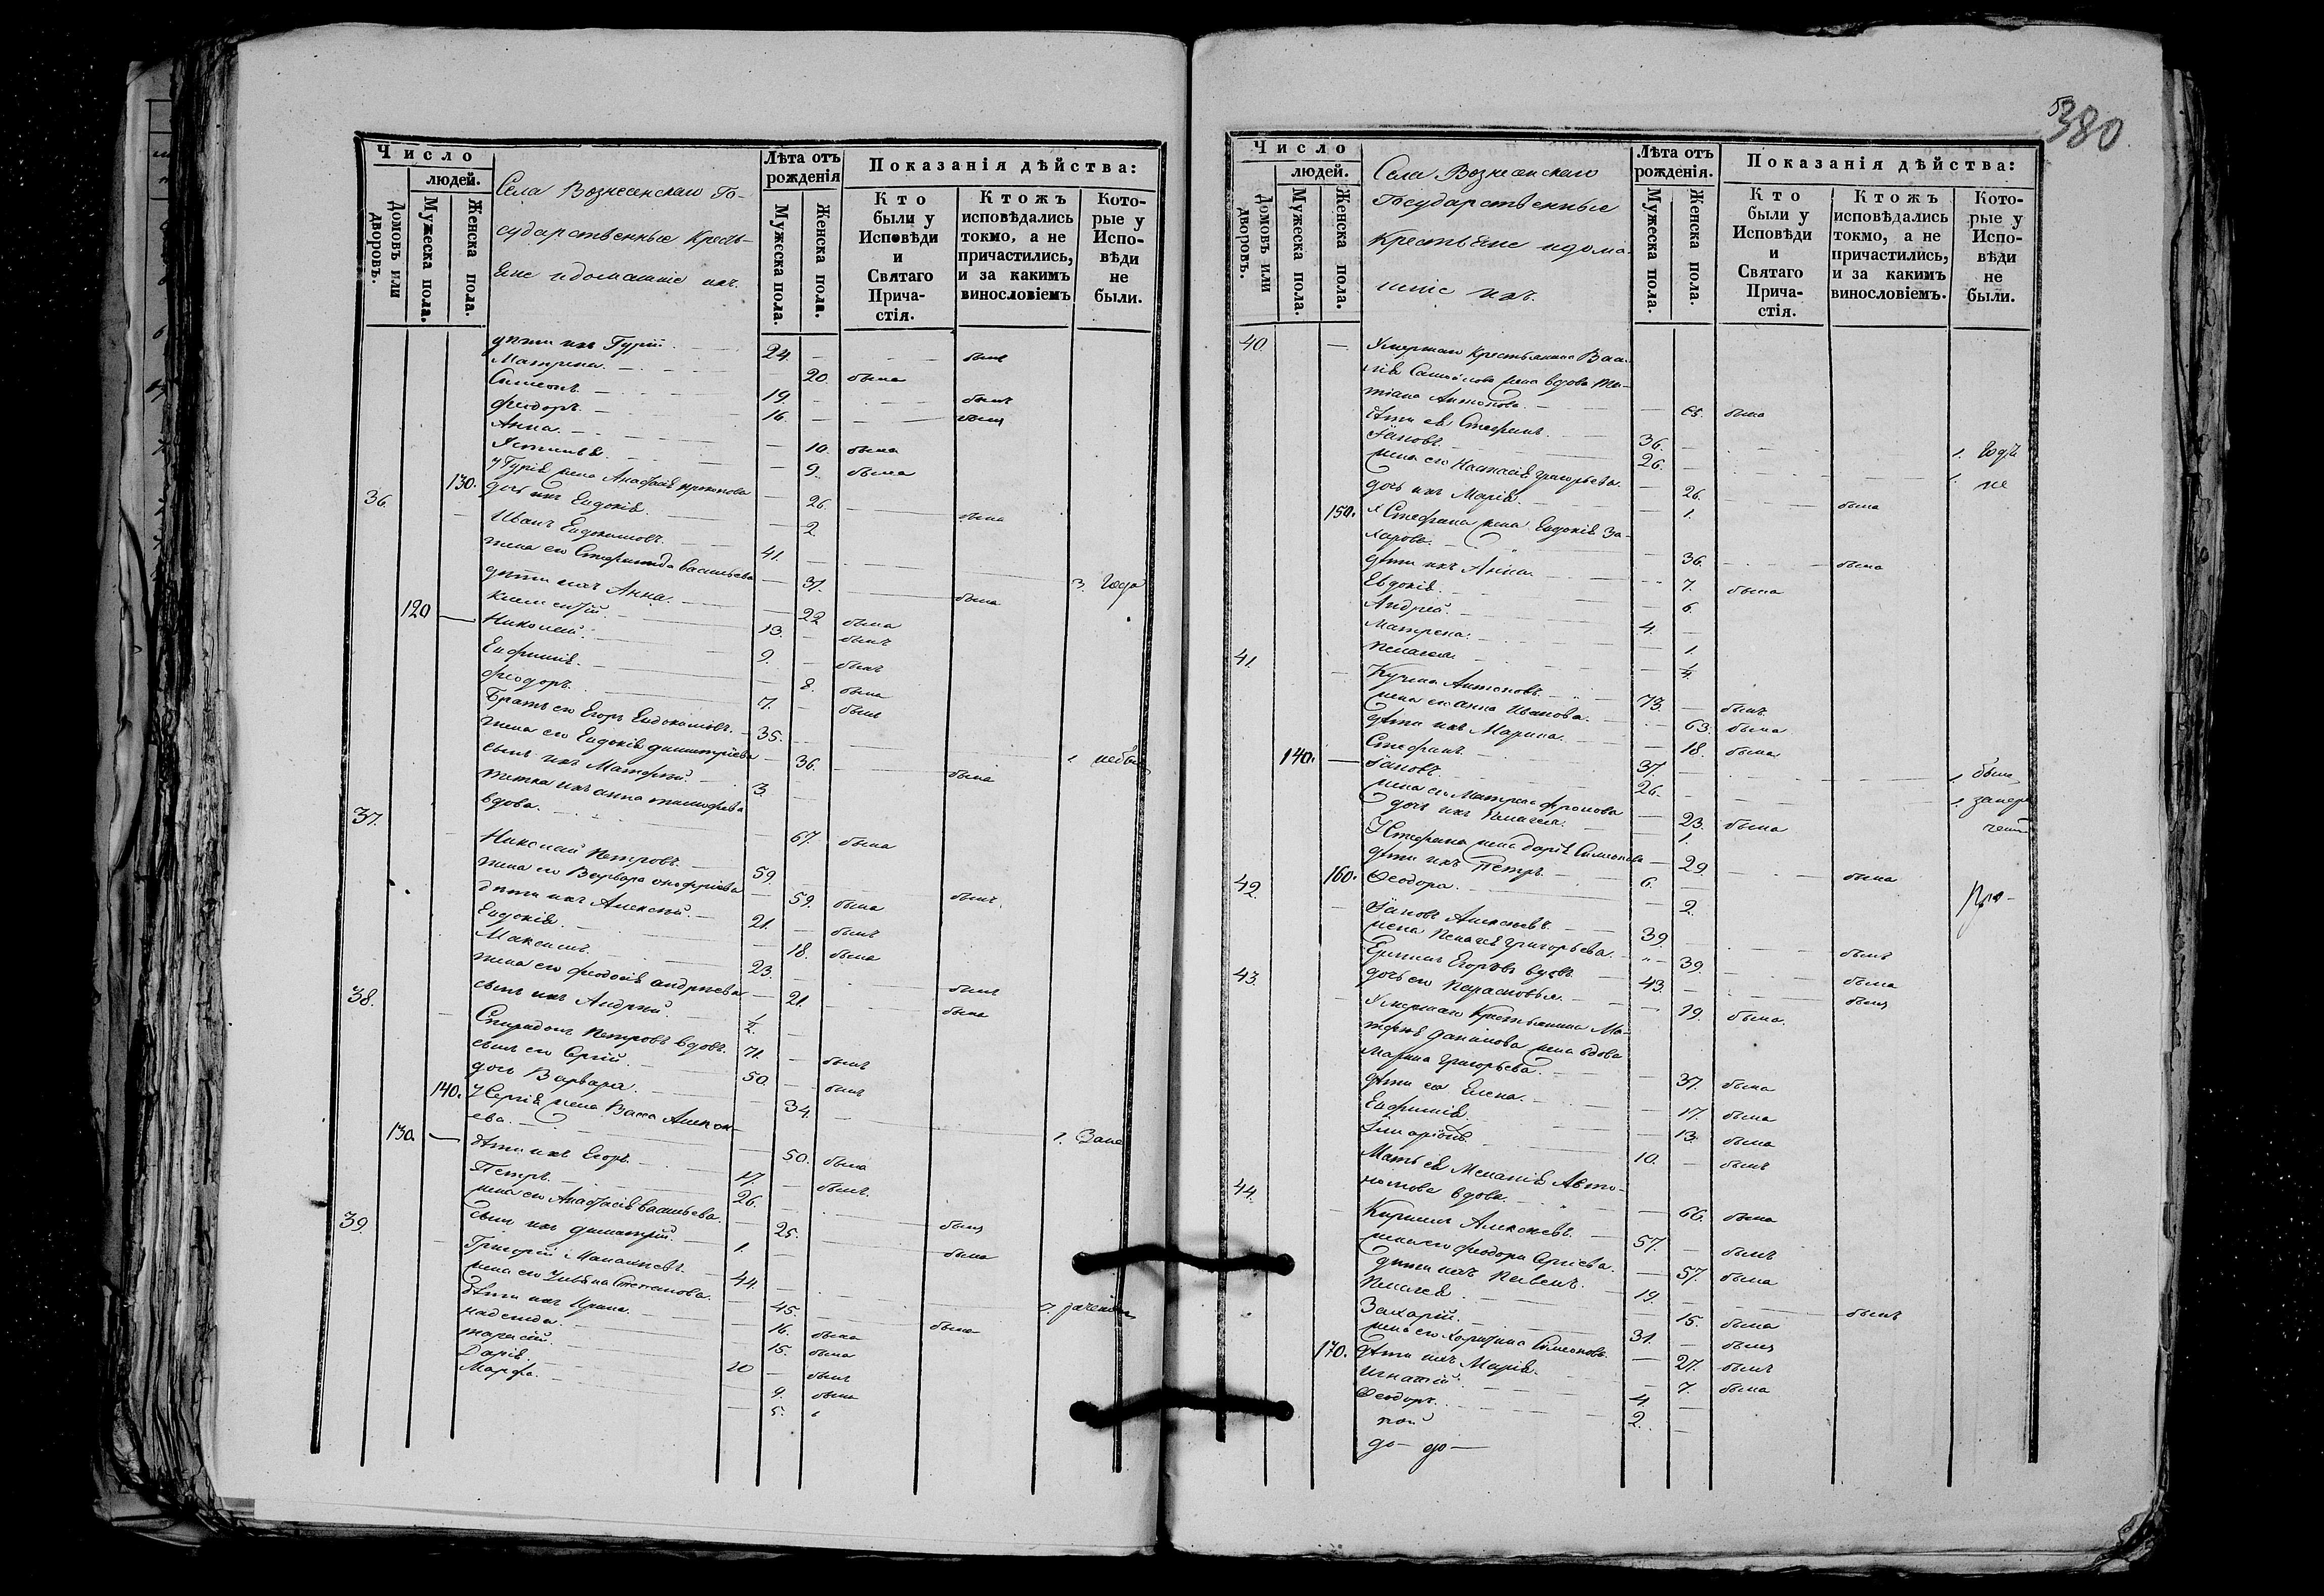 380
Число
людей.
Домовъ или дворовъ.
Мужеска пола.
Женска пола.
Села Вознесенскаго Го-
сударственные Кресть-
яне и домашніе ихъ.
Лѣта отъ рожденія
Мужеска пола.
Женска пола.
Показанія дѣйства:
Кто были у Исповѣди и Святаго Прича-стія.
Ктожъ исповѣдались токмо, а не причастились, и за какимъ винословіемъ
Кото-рые у Испо-вѣди не были.
дѣти ихъ Гурій. 24. былъ
Матрена. 20. была
Симеонъ. 19. былъ
Феодоръ. 16. былъ
Анна. 10. была
Устинья. 9. была
130. У Гурія жена Анастасія 26. была
дочь ихъ Евдокія. 2
36. Иванъ Евдокимовъ. 41. 3. Года
жена его Степанида Васильева 37. была
дѣти ихъ Анна. 22 была
Климентій. 13. былъ
120 Николай. 9. былъ
Евфимія. 8. была
Феодоръ. 7. былъ
Братъ его Егоръ Евдокимовъ. 35. 1. небы
жена его Евдокія Димитріева 36. была
сынъ ихъ Матфей 3.
тетка ихъ Анна Тимофеева
вдова. 67. была
37. Николай Петровъ. 59. былъ.
жена его Варвара Онофріева 59. была
дѣти ихъ Алексѣй. 21. былъ
Евдокія. 18. была
Максимъ. 23. былъ
жена его Феодосія Андреева 21. была
сынъ ихъ Андрей. 1/2.
38. Спиридонъ Петровъ вдовъ. 71. былъ
сынъ его Сергій. 50. былъ
дочь Варвара. 34. 1. Зане
140. У Сергія жена Васса Алексѣ-
ева. 50. была
130. дѣти ихъ Егоръ. 17. былъ.
Петръ. 26. былъ
жена его Анастасія Васильева. 25. была
сынъ ихъ Димитрій. 1.
39. Григорій 44.
жена его Ульяна Степанова. 45. была
дѣти ихъ Ирина. 16. была
Надежда. 15. была
Тарасій. 10 былъ
Дарія. 9. была
Марфа. 5.
Число
людей.
Домовъ или дворовъ.
Мужеска пола.
Женска пола.
Села Вознесенскаго
Государственные
Крестьяне и дома-
шніе ихъ.
Лѣта отъ рожденія.
Мужеска пола.
Женска пола.
Показанія дѣйства:
Кто были у Исповѣди и Святаго Прича-стія.
Ктожъ исповѣдались токмо, а не причастились, и за какимъ винословіемъ.
Кото-рые у Испо-вѣди не были.
40. Умершаго Крестьянина Васи-
лія Самойлова жена вдова Та-
тіана Антонова. была
дѣти ея Стефанъ. 36. 1. году
Іаковъ. 26. 1. не
жена его Настасія Григорьева. 26. была
дочь ихъ Марія. 1.
150. У Стефана жена Евдокія За-
харова. 36. была
дѣти ихъ Анна. 7. была
Евдокія. 6.
Андрей. 4.
Матрена. 1.
Пелагея
41. Антоновъ. 73. былъ.
жена его Анна Иванова. 63. была
дѣти ихъ Марина. 18. была
140. Стефанъ. 37. 1. былъ
Іаковъ. 26. 1.
жена его Матрена 23. была
дочь ихъ Пелагея. 1.
У Стефана жена Дарія Симеонова 29 была
дѣти ихъ Петръ. 6.
160. Феодора. 2.
42. Іаковъ Алексѣевъ. 39. былъ
жена Пелагея Григорьева. 39. была
Егоровъ вдовъ. 43. былъ
дочь его Парасковья. 19. была.
43. Умершаго Крестьянина Ма-
тфея Данилова жена вдова
Марина Григорьева. 37. была
дѣти ея Елена. 17. была
Евфимія. 13. была
Иларіонъ. 10. былъ
Мать ея Меланія Авто-
номова вдова. 66. была
44. Кириллъ Алексѣевъ. 57. былъ
жена его Феодора Сергіева. 57. была
дѣти ихъ Павелъ. 19. былъ
Пелагея 15. была
Захарій. 31. былъ
жена его Харитина Симеонова. 27. была
170. дѣти ихъ Марія. 7. была
Игнатій. 4.
Феодоръ. 2.